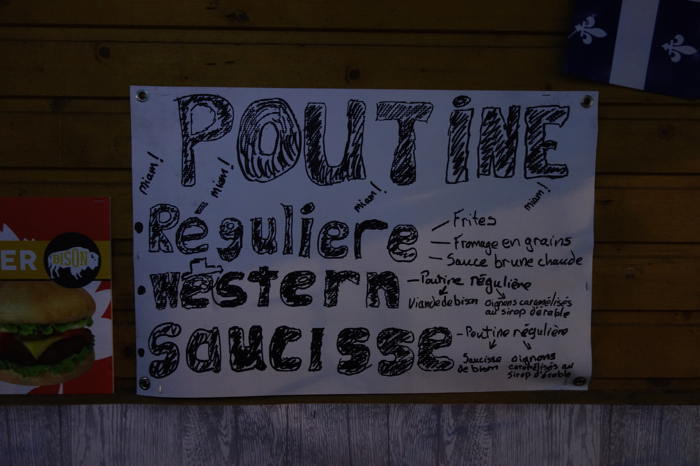 POUTINE
miam!
miam!
miam!
miam!
Régulière
Frites
Fromage en grains
Sauce brune chaude
Western
Poutine régulière
Viande de bison
oignons caramélisés
au sirop d'érable
Saucisse
Poutine régulière
Saucisse
de bison
oignons
caramélisés au
sirop d'érable
ER
BISON